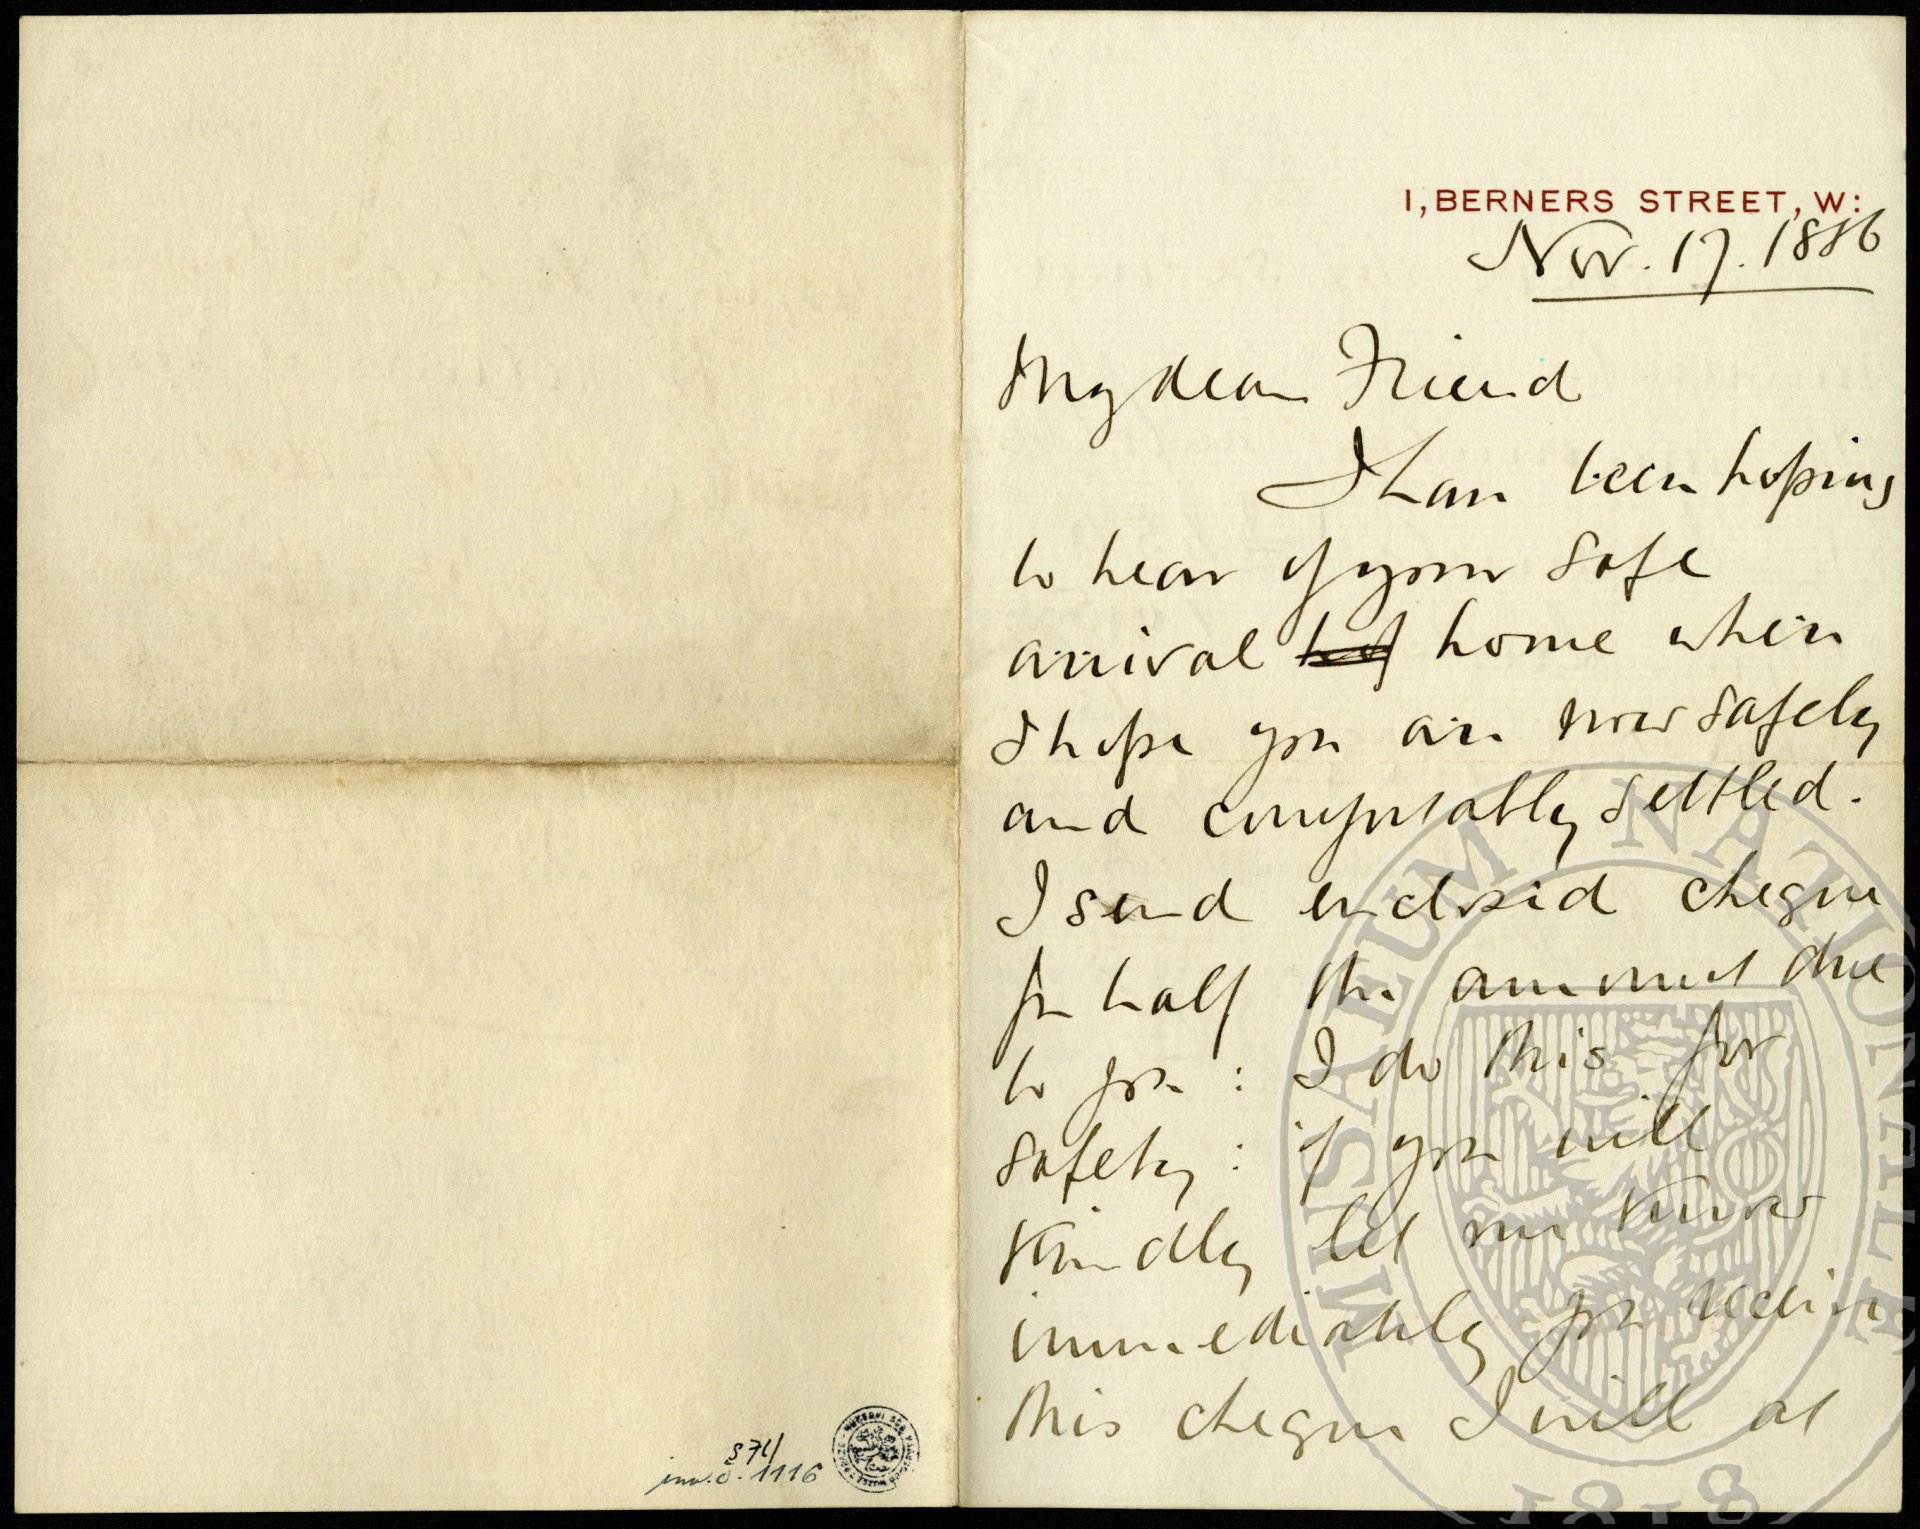 1, BERNERS STREET, W:
Nov. 17. 1886
My dear Friend
I have been hoping
to hear of your safe
arrival home where
I hope you are now safely
and comfortably settled.
I send enclosed cheque
for half the amount due
to you : I do this for
safety : if you will
kindly let me know
immediately you receive
this cheque I will at
inv. č. 1116
MUSAEUM NATIONALE
1818